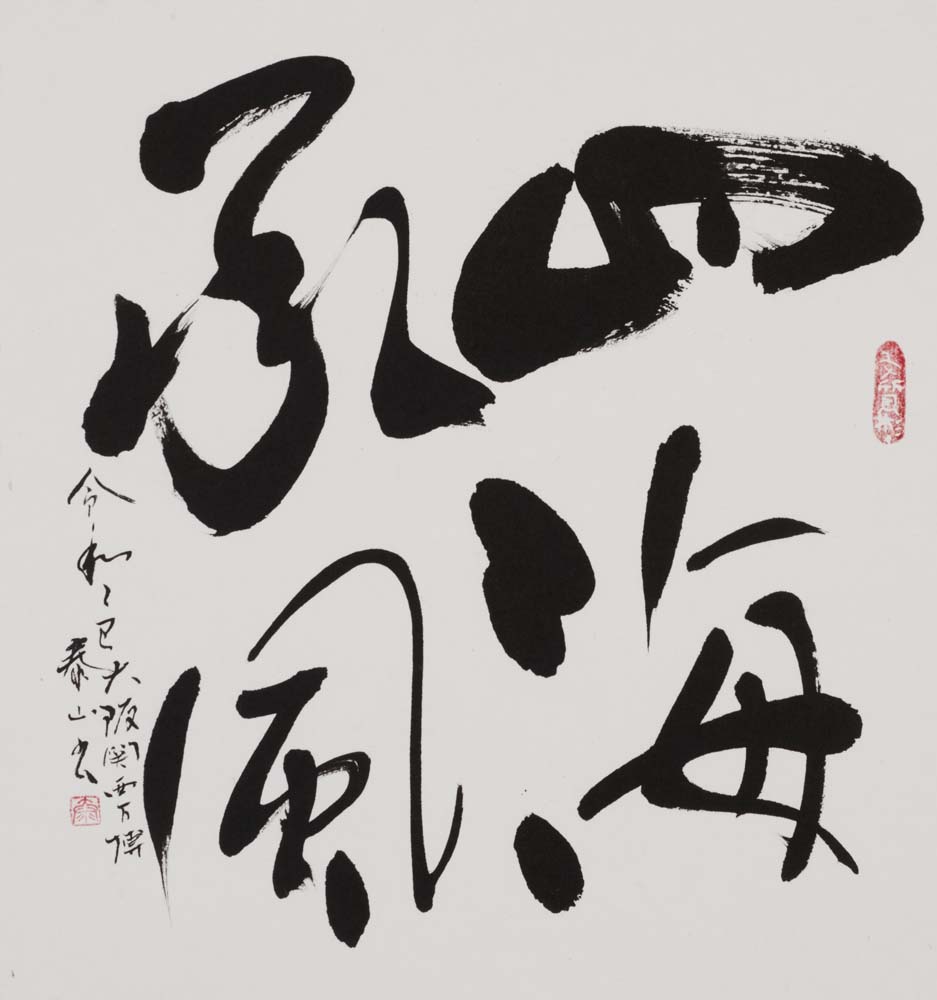 山海
承風
令和乙巳大阪関西万博
泰山书